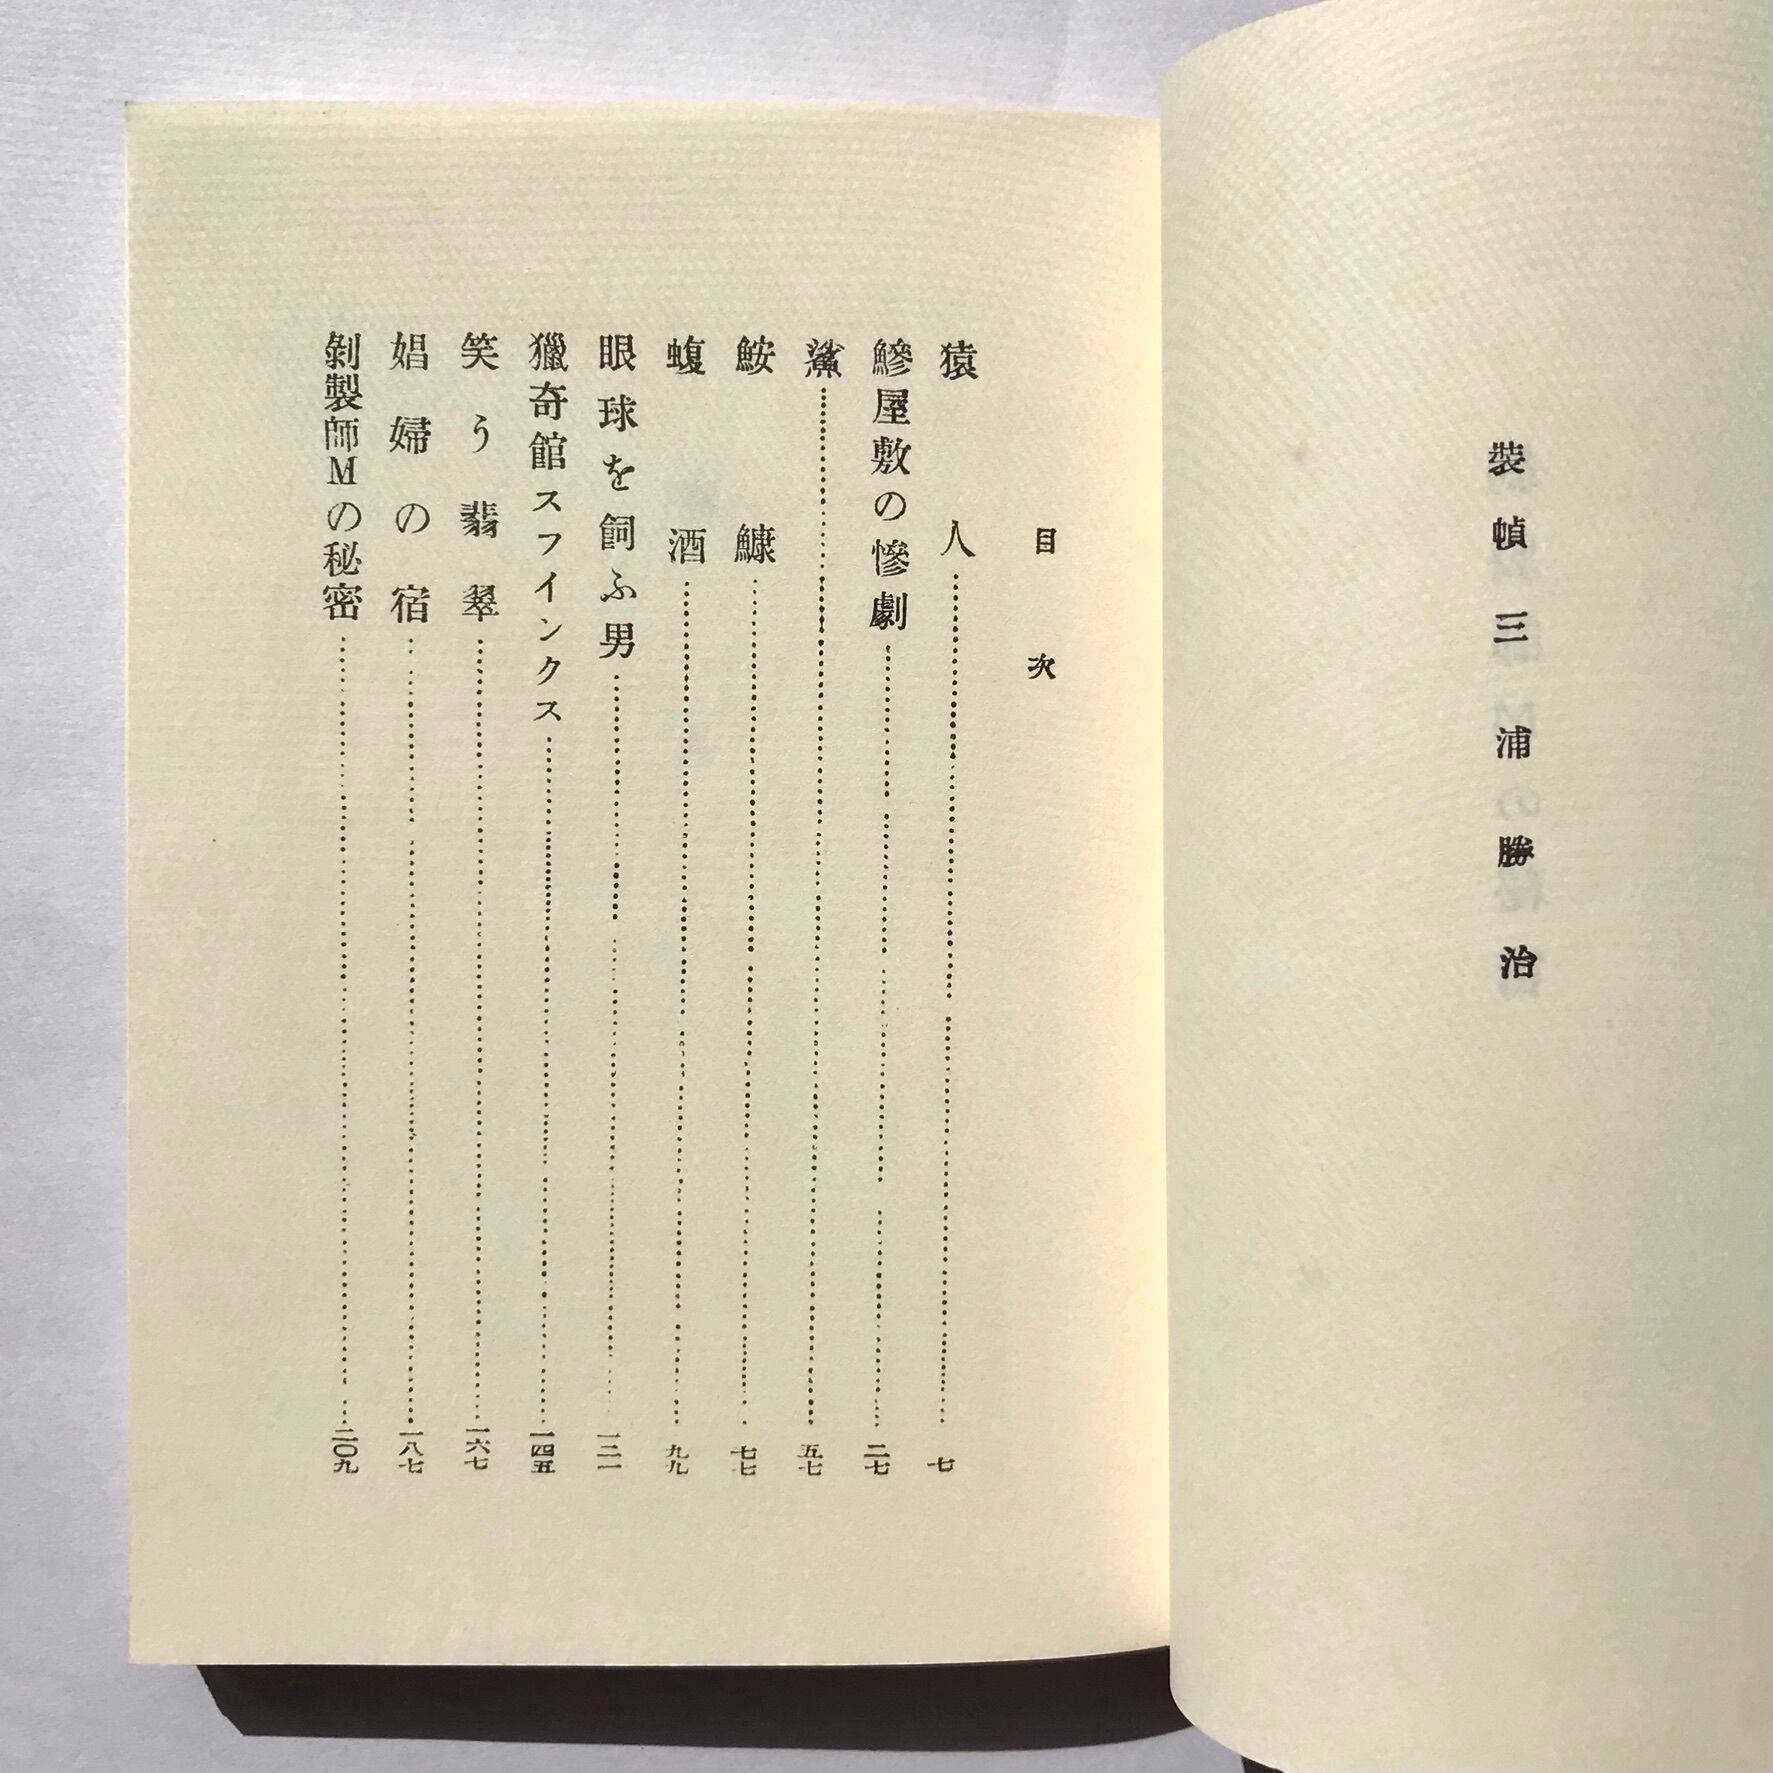 装幀 三浦勝治
目次
猿人……七
鰺屋敷の惨劇……二七
鯊……五七
鮟鱇……七七
蝮酒……九九
眼球を飼ふ男……一二一
獵奇館スフインクス……一四五
笑う翡翠……一六七
娼婦の宿……一八七
剝製師Mの秘密……二〇九